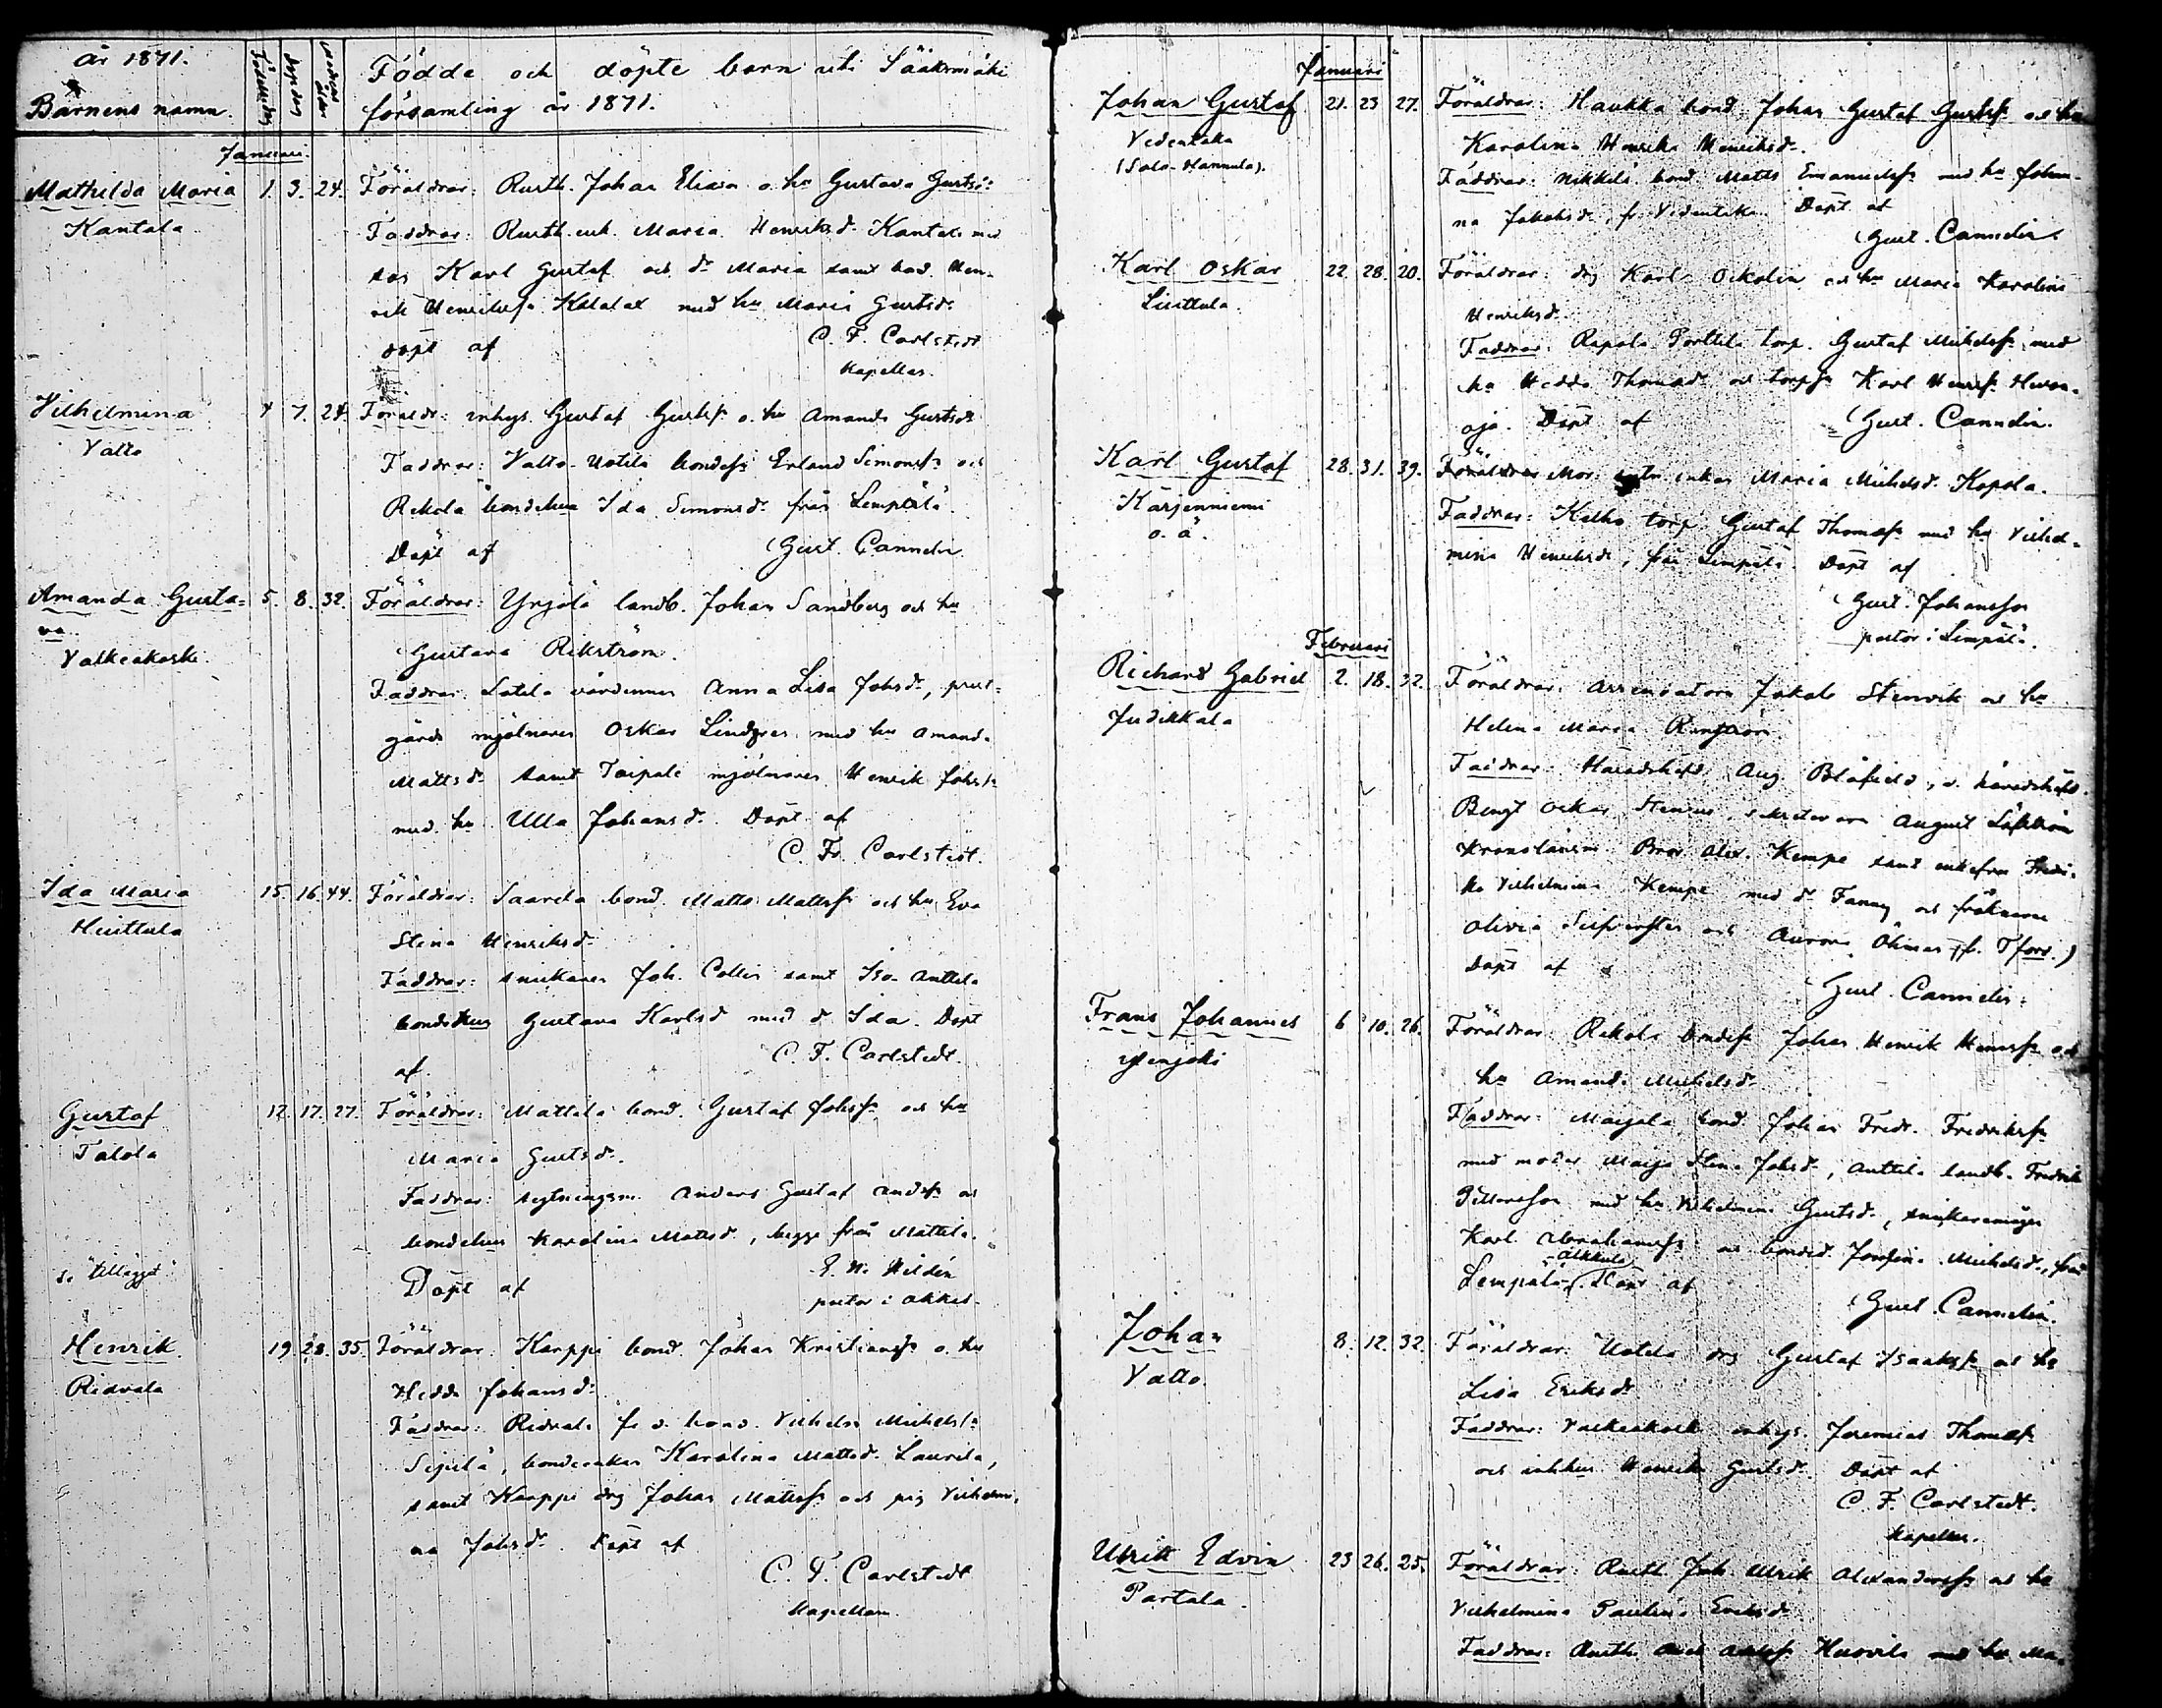 år 1871.
Barnens namn.
Födelsedag
dopsdag
modrens ålder
Födde och döpte barn uti Sääksmäki
församling år 1871.
Januari.
Mathilda Maria 1. 3. 24. Föräldrar: Rusth. Johan Eliasn o. hu Gustava Gustsdr
Kantala Faddrar: Rusth. enk. Maria Henriksdr Kantala med
son Karl Gustaf och dr Maria samt bond. Hen-
rik Henriksson med hu Maria Gustsdr
döpt af C. F. Carlstedt
Kapellan.
Vilhelmina 4 7. 24. Föräldr: inhys. Gustaf Gustsn o. hu Amanda Gustsdr
Valto Faddrar: Valto-Uotila bondesn Erland Simonsn och
Rekola bondehu Ida Simonsdr från Lempälä.
Döpt af Gust. Cannelin
Amanda Gusta- 5. 8. 32. Föräldrar: Yrjölä landb. Johan Sandberg och hu
va. Gustava Rikström.
Valkeakoski. Faddrar: Sotila värdinnan Anna Lisa Johsdr, prest-
gårds mjölnaren Oskar Lindgren med hu Amanda
Mattsdr samt Taipale mjölnaren Henrik Johsn
med hu Ulla Johansdr. Döpt af
C. Fr. Carlstedt.
Ida Maria 15. 16. 44. Föräldrar: Saarela bond. Matts Mattsn och hu Eva
Huittula Stina Henriksdr
Faddrar: snickaren Joh. Collin samt Iso-Anttila
bondehu Gustava Karlsd med d Ida. Döpt
af C. F. Carlstedt.
Gustaf 12. 17. 27. Föräldrar: Mattila bond. Gustaf Johsn och hu
Talola Maria Gustsdr.
Faddrar: sytningsm. Anders Gustaf Andsn och
bondehu Karolina Mattsd, begge från Mattila.
se "tillägget" Döpt af E. W. Hildén
pastor i Akkas.
Henrik. 19. 23. 35. Föräldrar: Karppi bond. Johan Kristiansn o. hu
Ridvala Hedda Johansdr
Faddrar: Ridvala f. d. bond. Vilhelm Michelsn
Sipilä, bondeenkan Karolina Mattsd. Laurila,
samt Karppi drg Johan Mattsn och pig Vilhelmi-
na Johsdr. Döpt af
C. F. Carlstedt
Kapellan.
Januari
Johan Gustaf 21. 23 27. Föräldrar: Haukka bond. Johan Gustaf Gustsn och hu
Vedentaka Karolina Henrika Henriksdr.
(Salo-Hannula). Faddrar: Nikkilä bond. Matts Emanuelsn med hu Johan-
na Jakobsdr, fr. Vedentaka. Döpt af
Gust. Cannelin
Karl Oskar 22. 28. 20. Föräldrar: drg Karl Oskolin och hu Maria Karolina
Huittula. Henriksdr.
Faddrar: Rapola Torttila torp. Gustaf Michelsn med
hu Hedda Thomasdr och torpsn Karl Henrsn Huvan-
oja. Döpt af Gust. Cannelin.
Karl Gustaf 28. 31. 39. Föräldrar Mor: enkan Maria Michelsd. Kopola.
Kärjenniemi Faddrar: Kelho torp. Gustaf Thomasn med hu Vilhel-
o. ä. mina Henriksdr, från Lempälä. Döpt af
Gust. Johansson
pastor i Lempälä.
Februari
Richard Gabriel 2. 18. 32. Föräldrar: Arrendatorn Jakob Stenvik och hu
Jutikkala Helena Maria
Faddrar: Häradshöfd. Aug. Blåfield, v. häradshöfd.
Bengt Oskar sekreteraren August Löfström
Kronolänsm. Alex. Kempe samt enkefru Fredri-
ka Vilhelmina Kempe med dr Fanny och fröknarna
Olivia och Aurora Öhman (fr. Tfors.)
Döpt af
Gust. Cannelin.
Frans Johannes 6 10. 26. Föräldrar: Rekola bondesn Johan Henrik Henrsn och
hu Amanda Michelsdr
Faddrar: Marjola bond. Johan Fredr. Fredriksn
med moder Maja Stina Johsdr, Anttila landb. Fredrik
Pettersson med hu Vilhelmina Gustsdr,
Karl Abrahamsn och bonded. Josefina Michelsdr, från
Lempälä-Alkkula. Döpt af
Gust. Cannelin.
Johan 8. 12. 32. Föräldrar: Uotila drg Gustaf Isaaksn och hu
Valto. Lisa Eriksdr
Faddrar: Valkeakoski inhys. Jeremias Thomasn
och enkhu Henrika Gustsdr. Döpt af
C. F. Carlstedt.
Kapellan.
Ulrik Edvin 23 26. 25. Föräldrar: Rusth. Joh. Ulrik Alexandersn och hu
Partala. Vilhelmina Paulina Eriksdr
Faddrar: Rusth. Huovila med hu Ma-